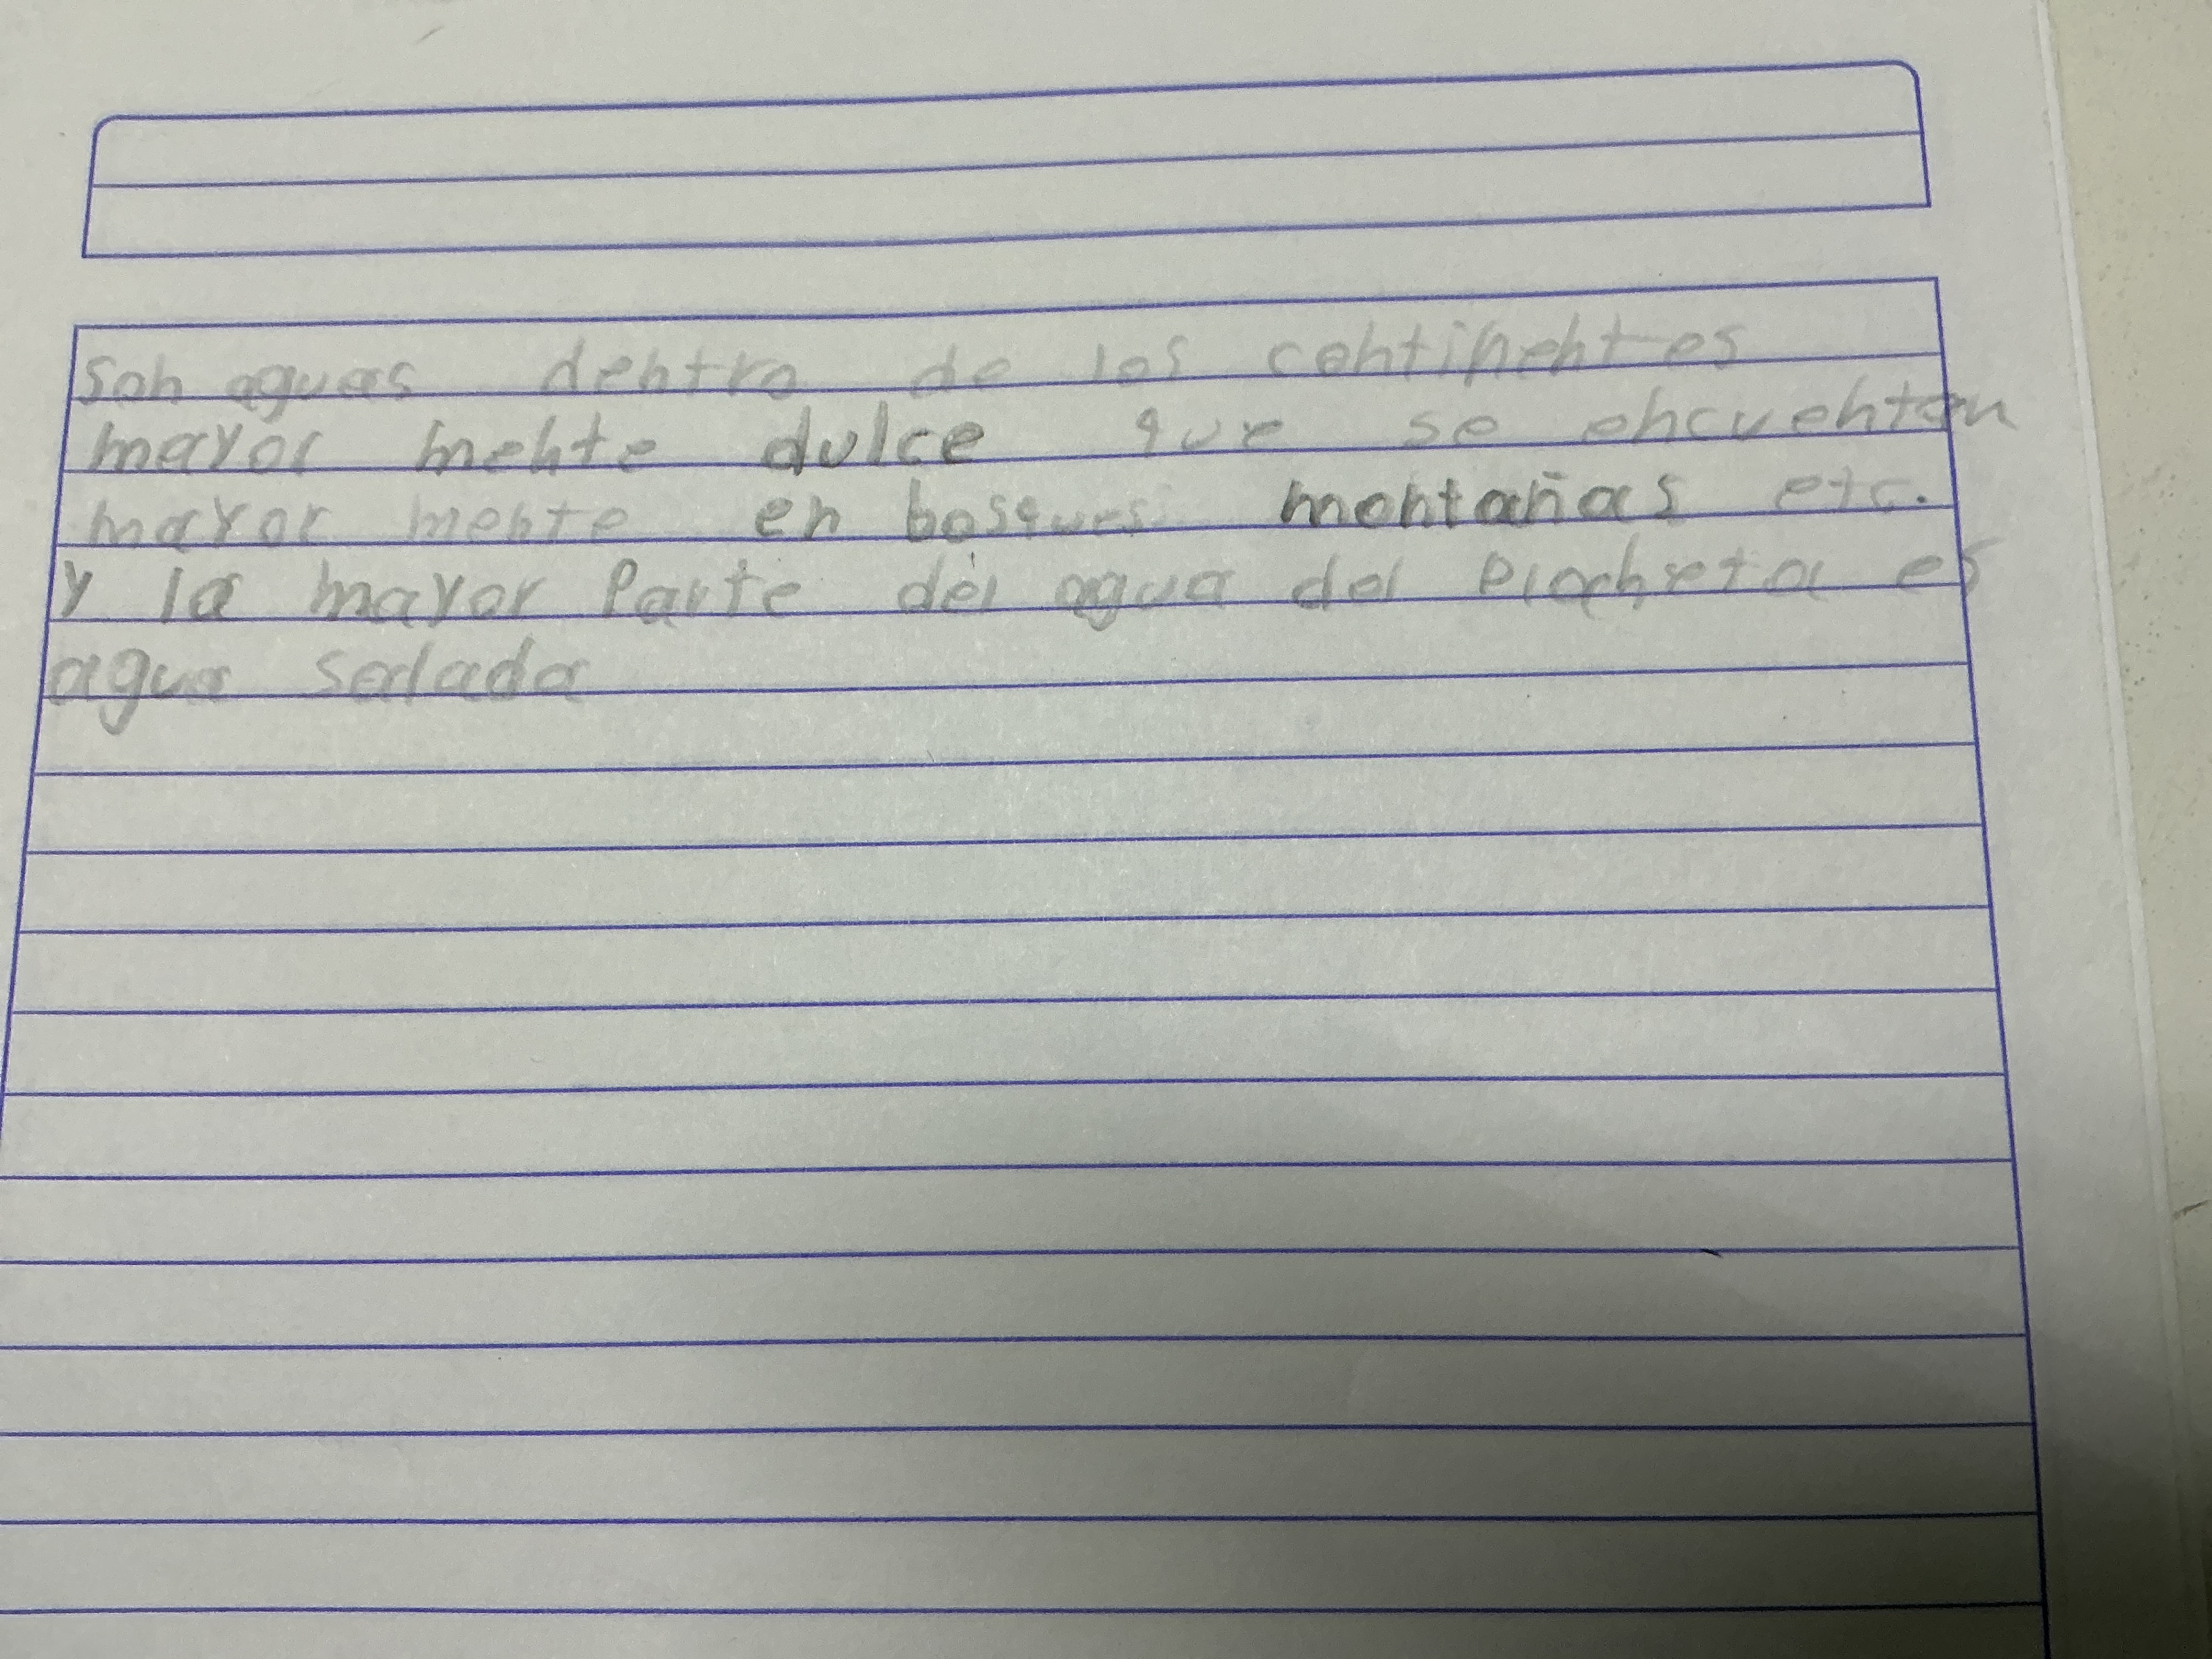 Son aguas dentro de los continentes
mayor mente dulce que se encuentan
mayor mente en bosques montañas etc.
y la mayor Parte del agua del Planeta es
agua salada